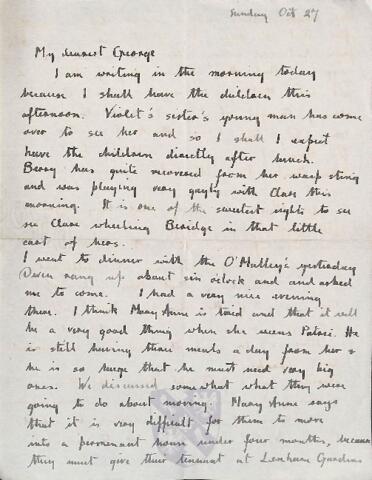 Sunday Oct 27
My dearest George
I am writing in the morning today
because I shall have the children this
afternoon. Violet's sister's young man has come
over to see her and so I shall I expect
have the children directly after lunch.
Berry has quite recovered from her wasp sting
and was playing very gayly with Clare this
morning. It is one of the sweetest sights to see
see Clare wheeling Beridge in that little
cart of hers.
I went to dinner with the O'Malley's yesterday
Owen rang up about six o'clock and and asked
me to come. I had a very nice evening
there. I think Mary Anne is tired and that it will
be a very good thing when she weans Patric. He
is still having three meals a day from her &
he is so huge that he must need very big
ones. We discussed somewhat what they were
going to do about moving. Mary Anne says
that it is very difficult for them to move
into a permanent house under four months, because
they must give their tennant at Lenham Gardens